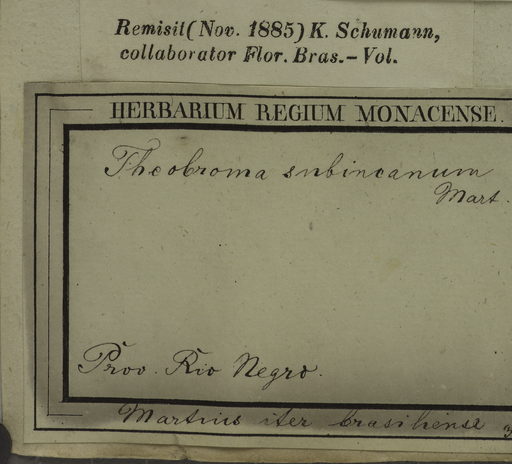 Remisit (Nov. 1885) K. Schumann,
collaborator Flor. Bras. – Vol.
HERBARIUM REGIUM MONACENSE.
Theobroma subincanum
Mart.
Prov. Rio Negro.
Martius iter brasiliense